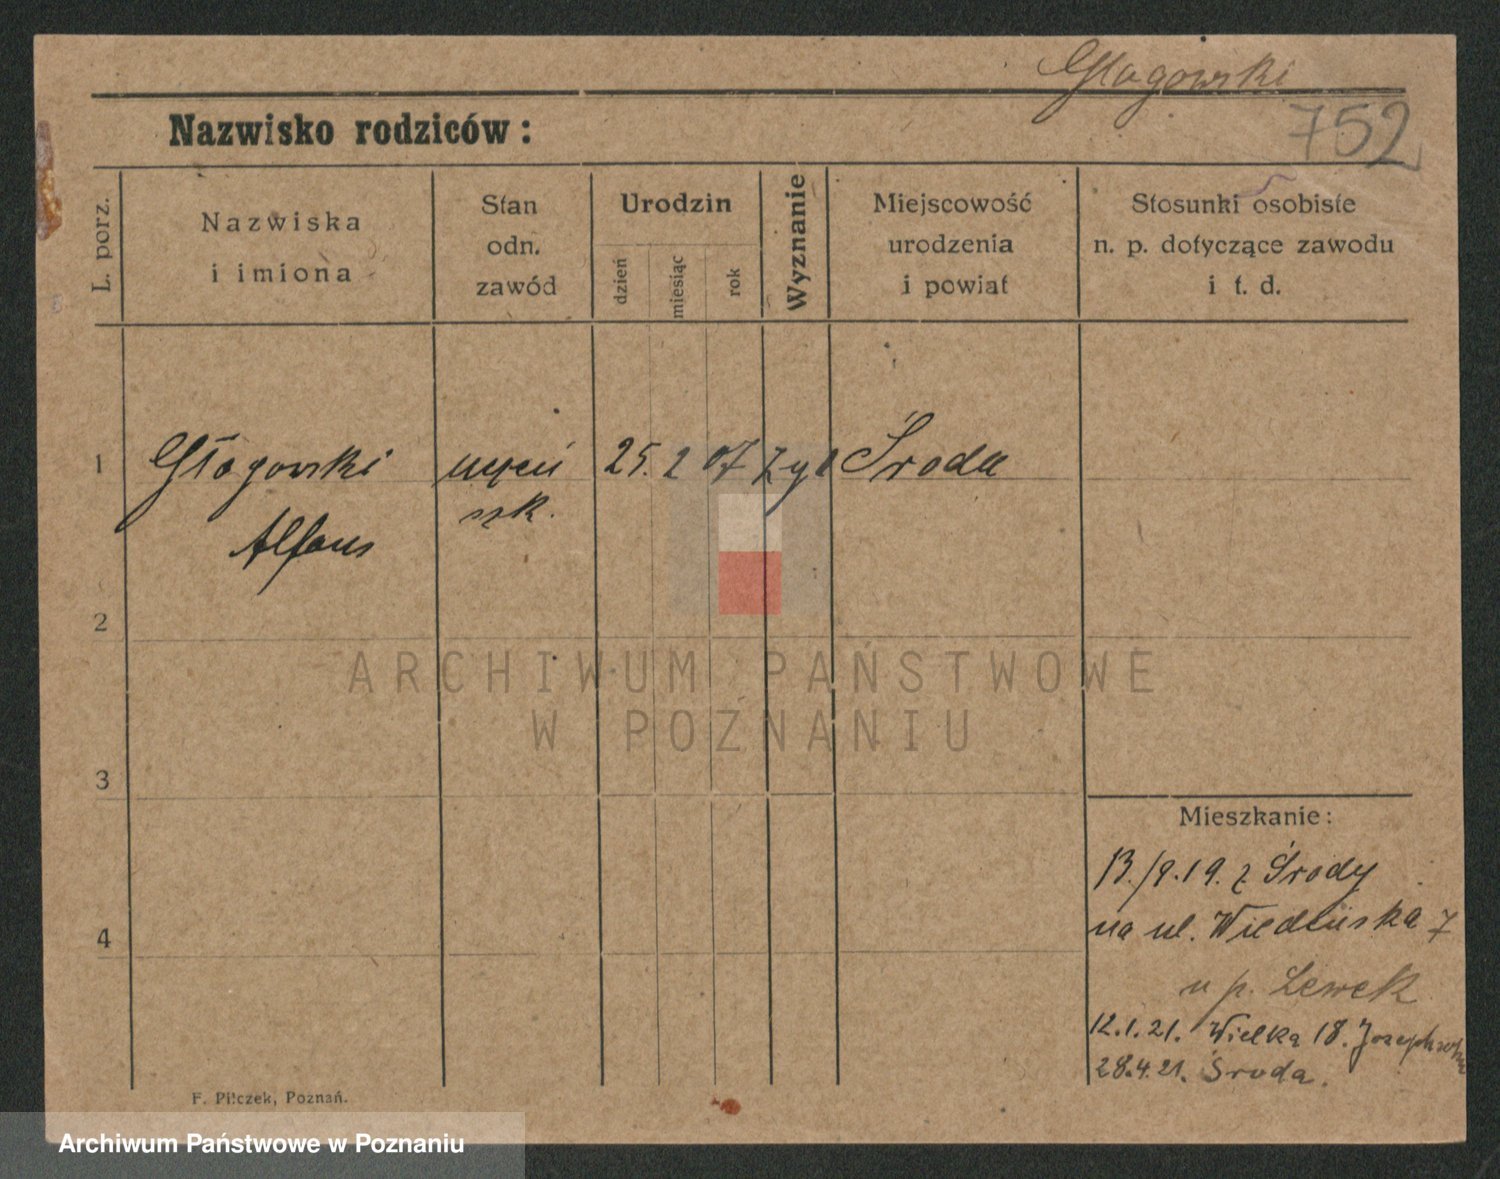 Głogowski
752
Nazwisko rodziców:
L. porz.
Nazwiska
i imiona
Stan
odn.
zawód
Urodzin
dzień
miesiąc
rok
Wyznanie
Miejscowość
urodzenia
i powiat
Stosunki osobiste
n. p. dotyczące zawodu
i t. d.
1 Głogowski uczeń 25. 2 07 żyd Środa
szk.
Alfons
2
ARCHIWUM PAŃSTWOWE
W POZNANIU
3
Mieszkanie:
z Środy
4
na ul. 7
u p. Lewek
12.1.21. Wielka 18.
28.4.21. Środa.
F. Pilczek, Poznań.
Archiwum Państwowe w Poznaniu